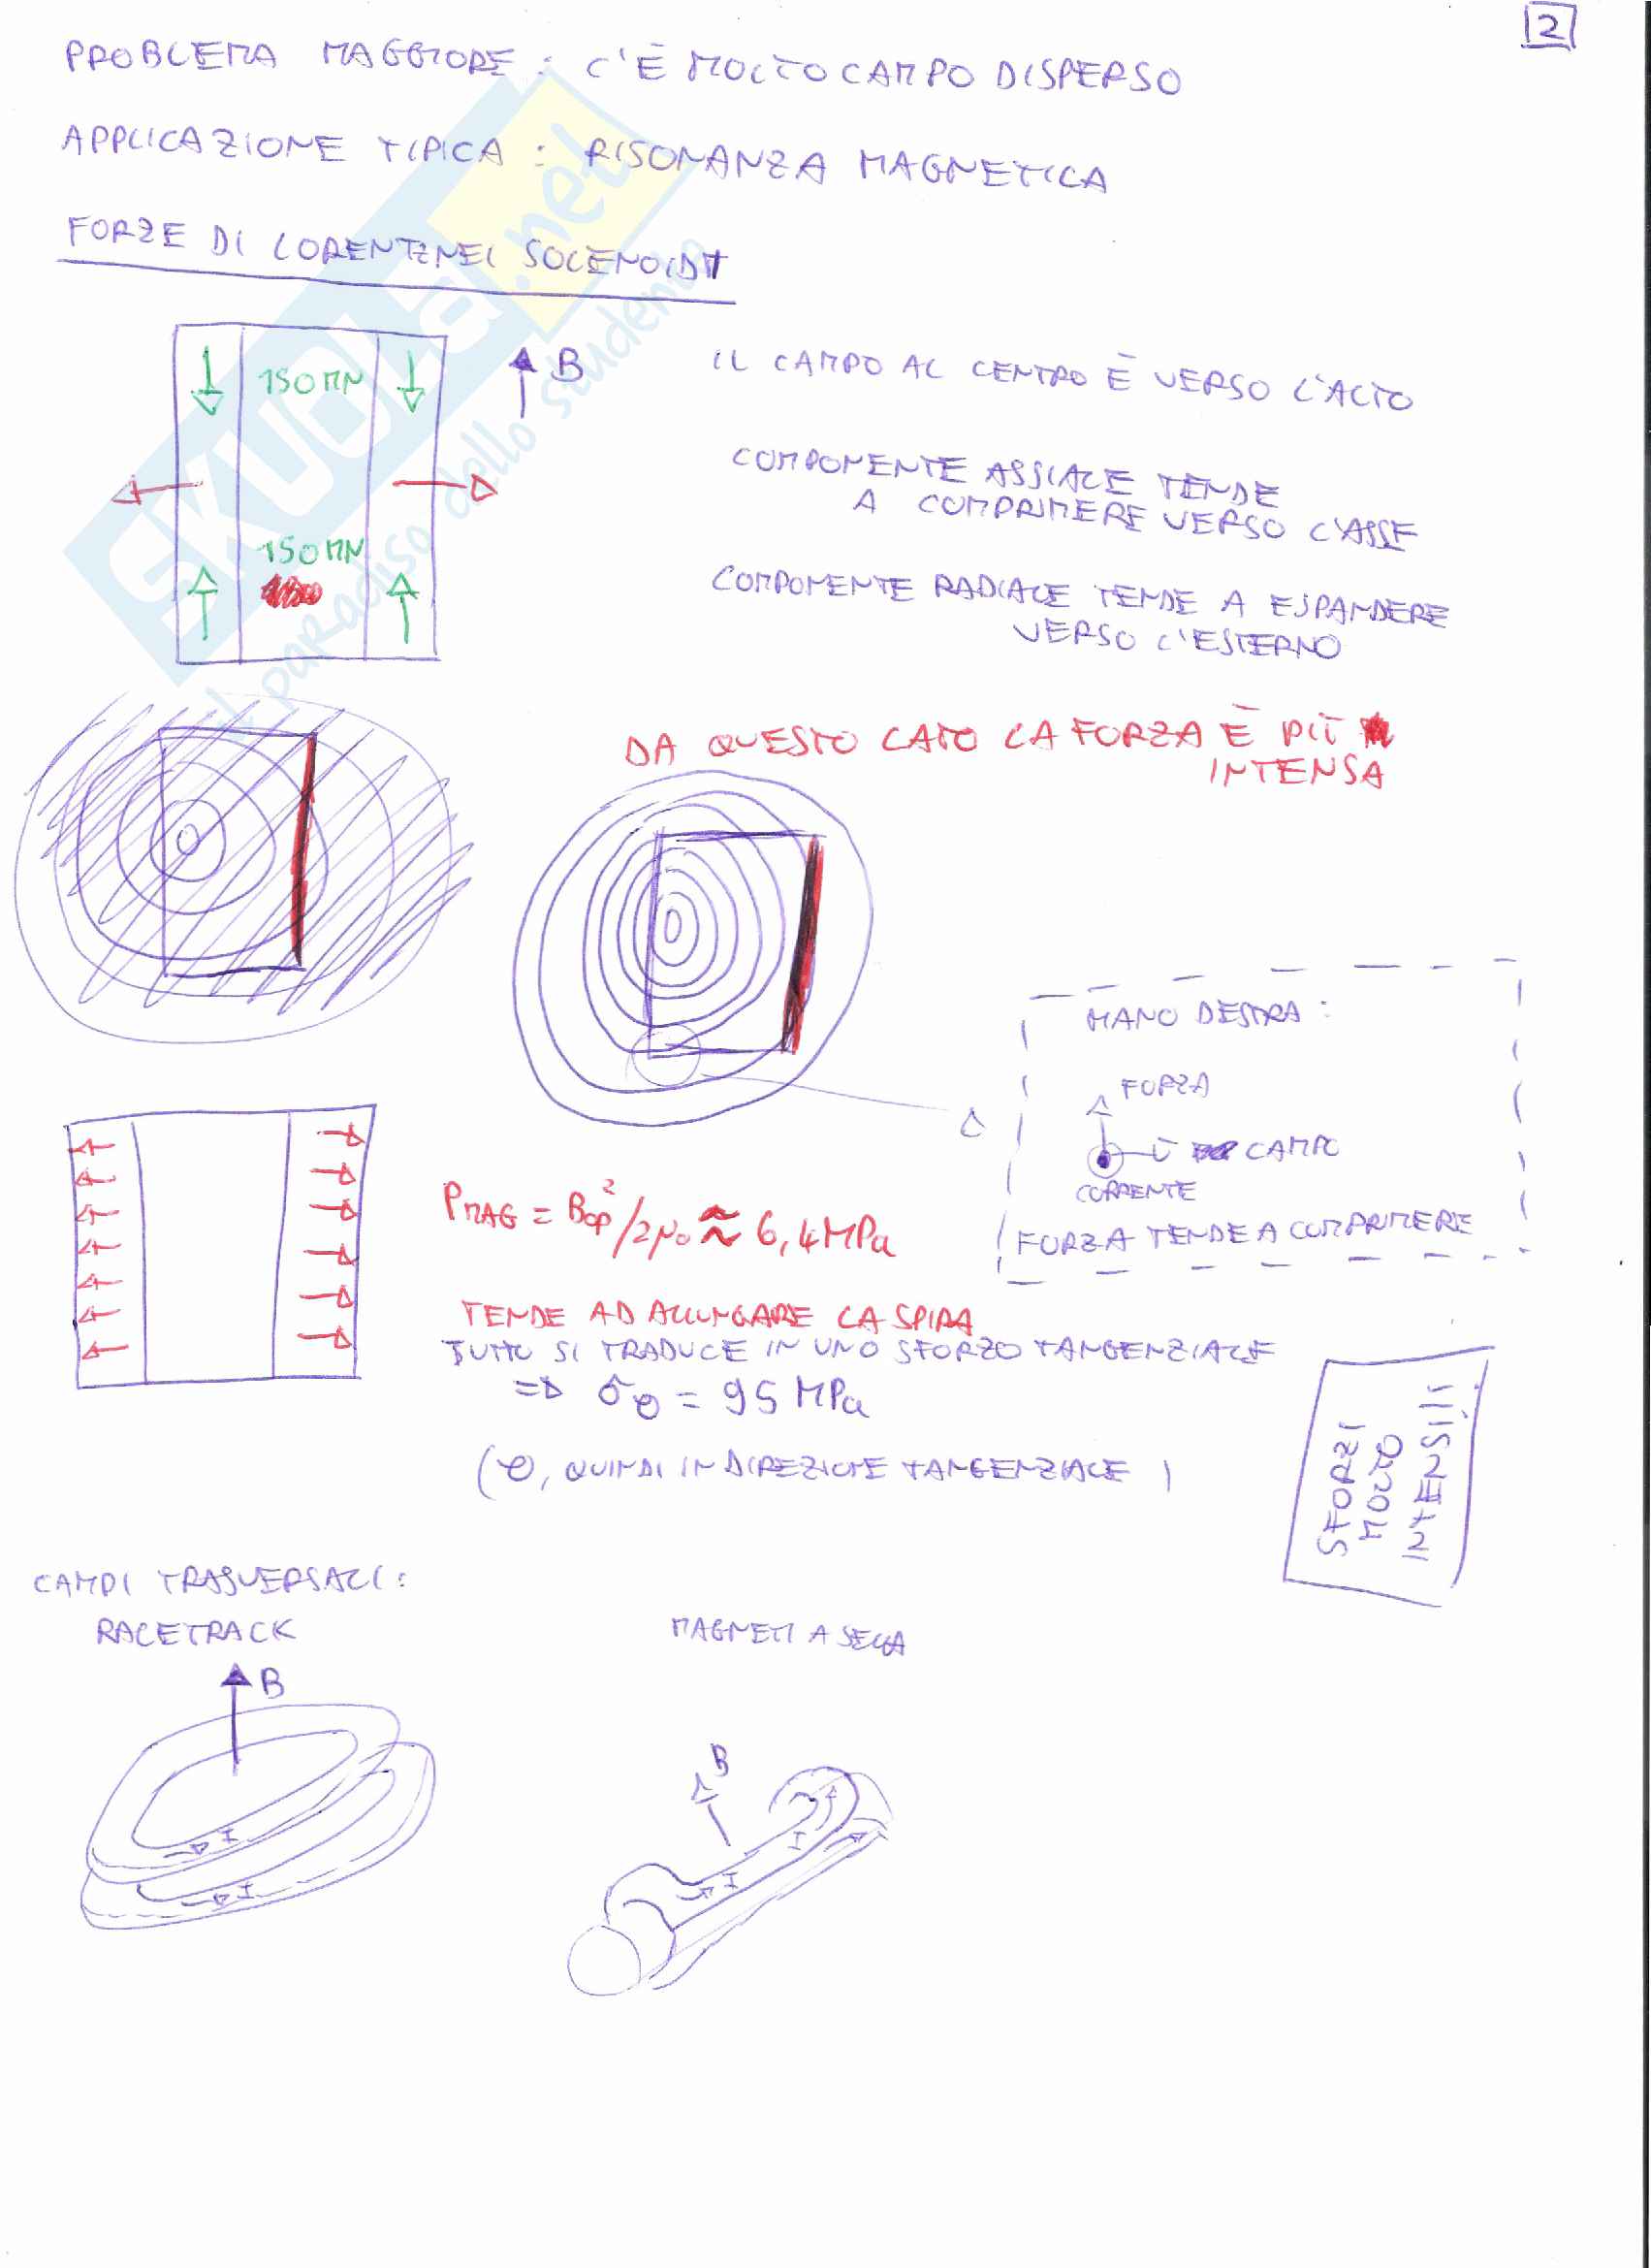 2
PROBLEMA MAGGIORE : C'È MOLTO CAMPO DISPERSO
APPLICAZIONE TIPICA : RISONANZA MAGNETICA
FORZE DI LORENTZ NEI SOLENOIDI
150 MN
B
IL CAMPO AL CENTRO È VERSO L'ALTO
COMPONENTE ASSIALE TENDE
A COMPRIMERE VERSO L'ASSE
150 MN
COMPONENTE RADIALE TENDE A ESPANDERE
VERSO L'ESTERNO
DA QUESTO LATO LA FORZA È PIÙ
INTENSA
MANO DESTRA :
FORZA
CAMPO
CORRENTE
FORZA TENDE A COMPRIMERE
PMAG = Bop²/2μ₀ ≈ 6,4 MPa
TENDE AD ALLUNGARE LA SPIRA
TUTTO SI TRADUCE IN UNO SFORZO TANGENZIALE
=> σθ = 95 MPa
(θ, QUINDI IN DIREZIONE TANGENZIALE)
SFORZI
MOLTO
INTENSI!!
CAMPI TRASVERSALI :
RACETRACK
MAGNETI A SELLA
B
B
I
I
I
I
SKUOLA.net
il paradiso dello studente